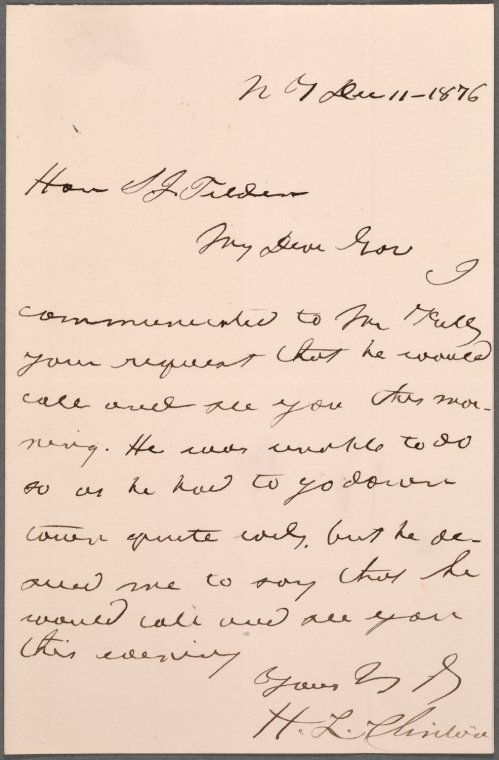 N Y Dec 11-1876
Hon S J Tilden
My Dear Gov
I
communicated to Mr Kelly
your request that he would
call and see you this mor-
ning. He was unable to do
so as he had to go down
town quite early, but he de-
sired me to say that he
would call and see you
this evening
Yours
H. L. Clinton